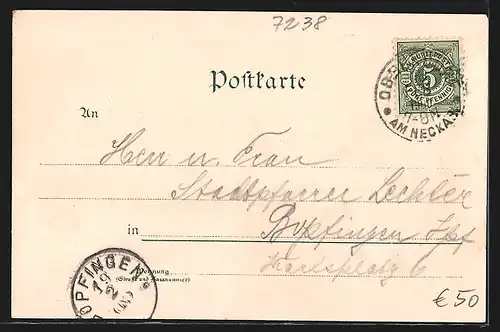 7238
Postkarte
5
FÜNF PFENNIG
AM NECKAR
An
Herrn u. Frau
Stadtpfarrer Lechler
in Bopfingen Ipf
Marktplatz 6
Wohnung
(Straße und Hausnummer)
BOPFINGEN
19
2
€ 50